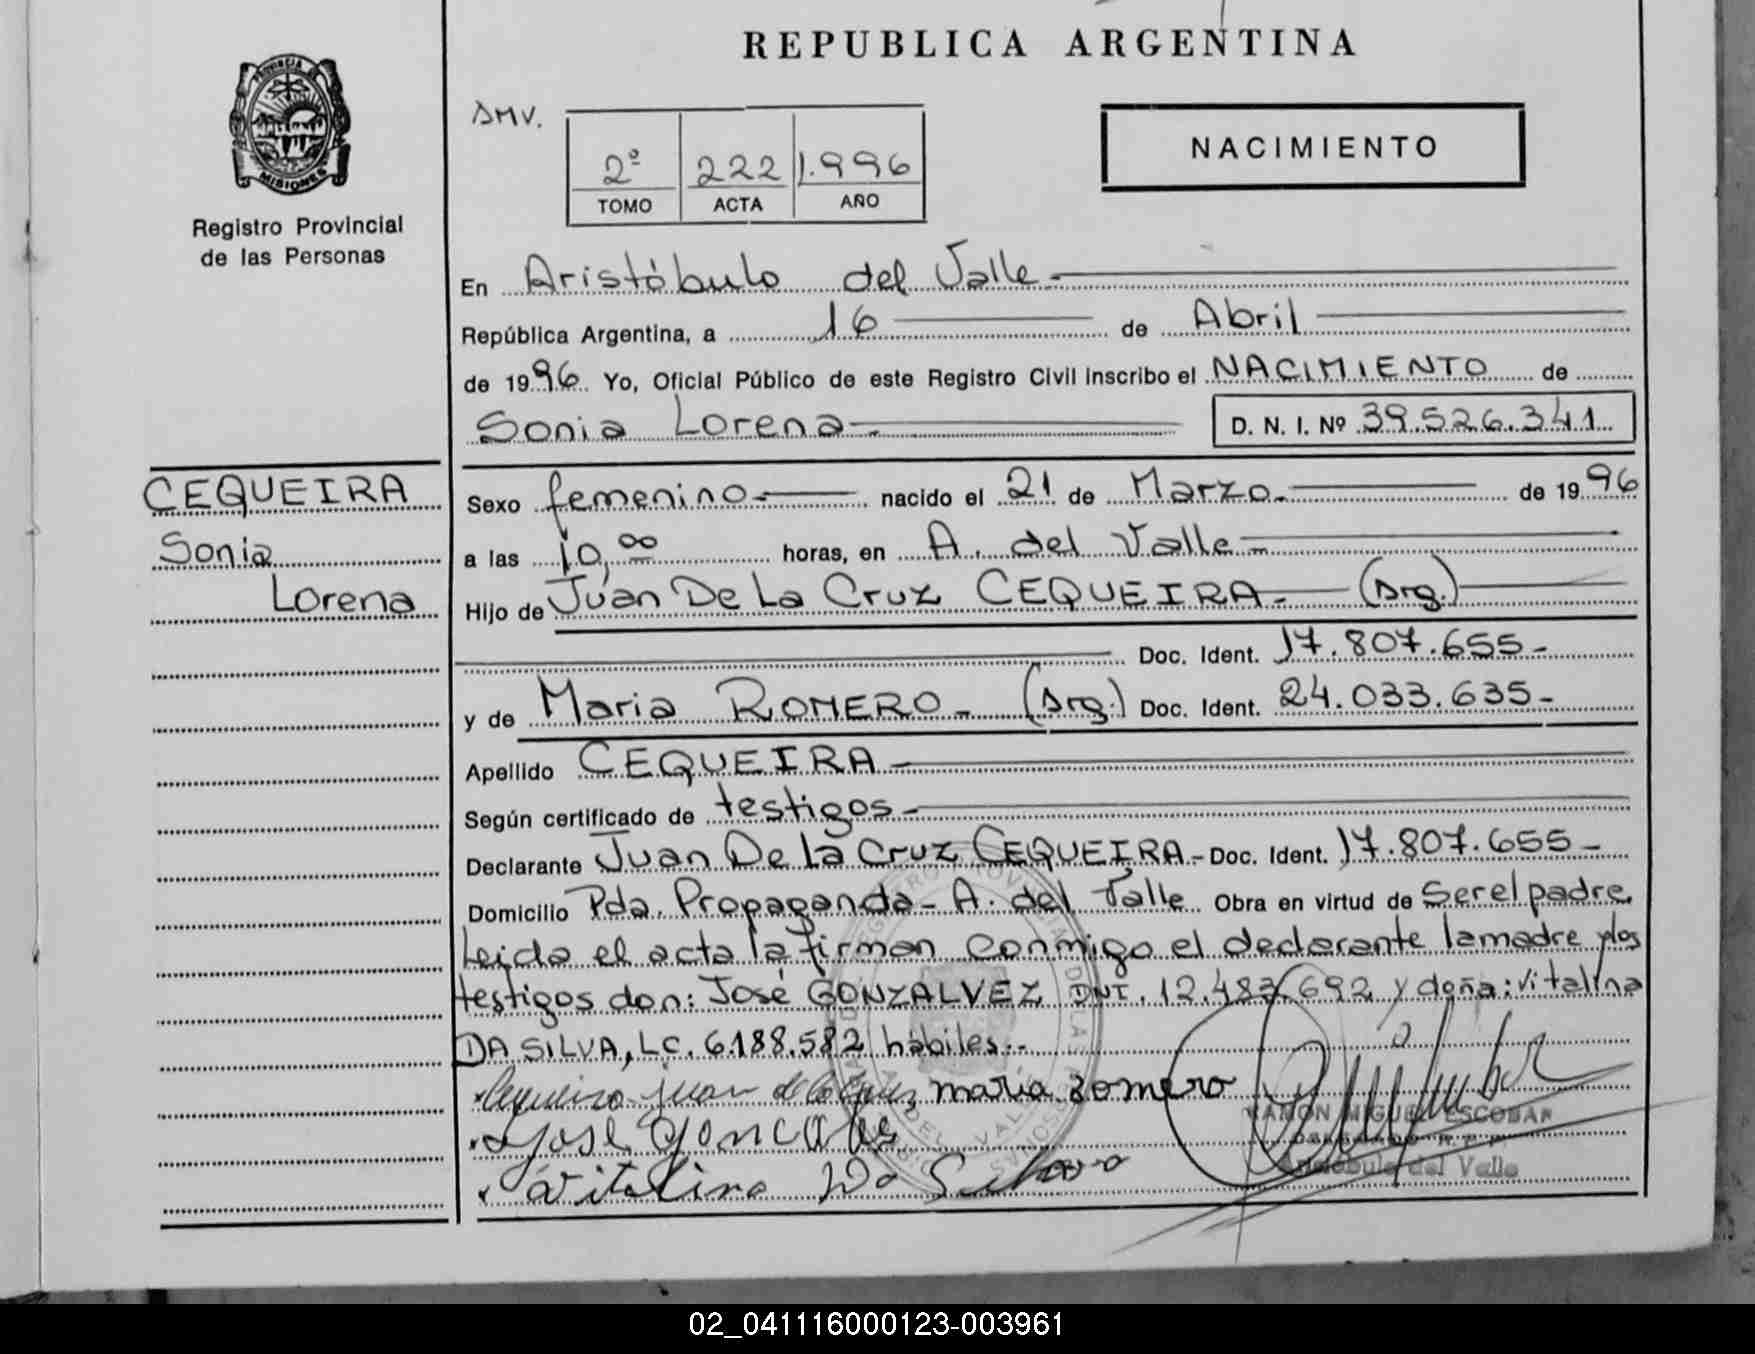 REPUBLICA ARGENTINA
PROVINCIA DE MISIONES
Registro Provincial
de las Personas
SMV.
2º 222 1.996
TOMO ACTA AÑO
NACIMIENTO
En Aristóbulo del Valle.-
República Argentina, a 16 de Abril
de 1996 Yo, Oficial Público de este Registro Civil inscribo el NACIMIENTO de
Sonia Lorena-. D. N. I. Nº 39.526.341
CEQUEIRA
Sonia
Lorena
Sexo femenino.- nacido el 21 de Marzo.- de 1996
a las 10,00 horas, en A. del Valle.-
Hijo de Juan De La Cruz CEQUEIRA.- (Arg.)
Doc. Ident. 17.807.655-
y de Maria ROMERO- (Arg.) Doc. Ident. 24.033.635-
Apellido CEQUEIRA-
Según certificado de testigos-
Declarante Juan De la Cruz CEQUEIRA- Doc. Ident. 17.807.655-
Domicilio Pda. Propaganda- A. del Valle Obra en virtud de Ser el padre
Leida el acta la firman conmigo el declarante la madre y los
testigos don: José GONZALVEZ DNI. 12.483.692 y doña: Vitalina
DA SILVA, LC. 6.188.582 hábiles.-
Cequeira juan de la Cruz maria Romero
Jose Goncalves
Vitalina Da Silva
RAMON MIGUEL ESCOBAR
DELEGADO R.P.P.
Aristóbulo del Valle
02_041116000123-003961